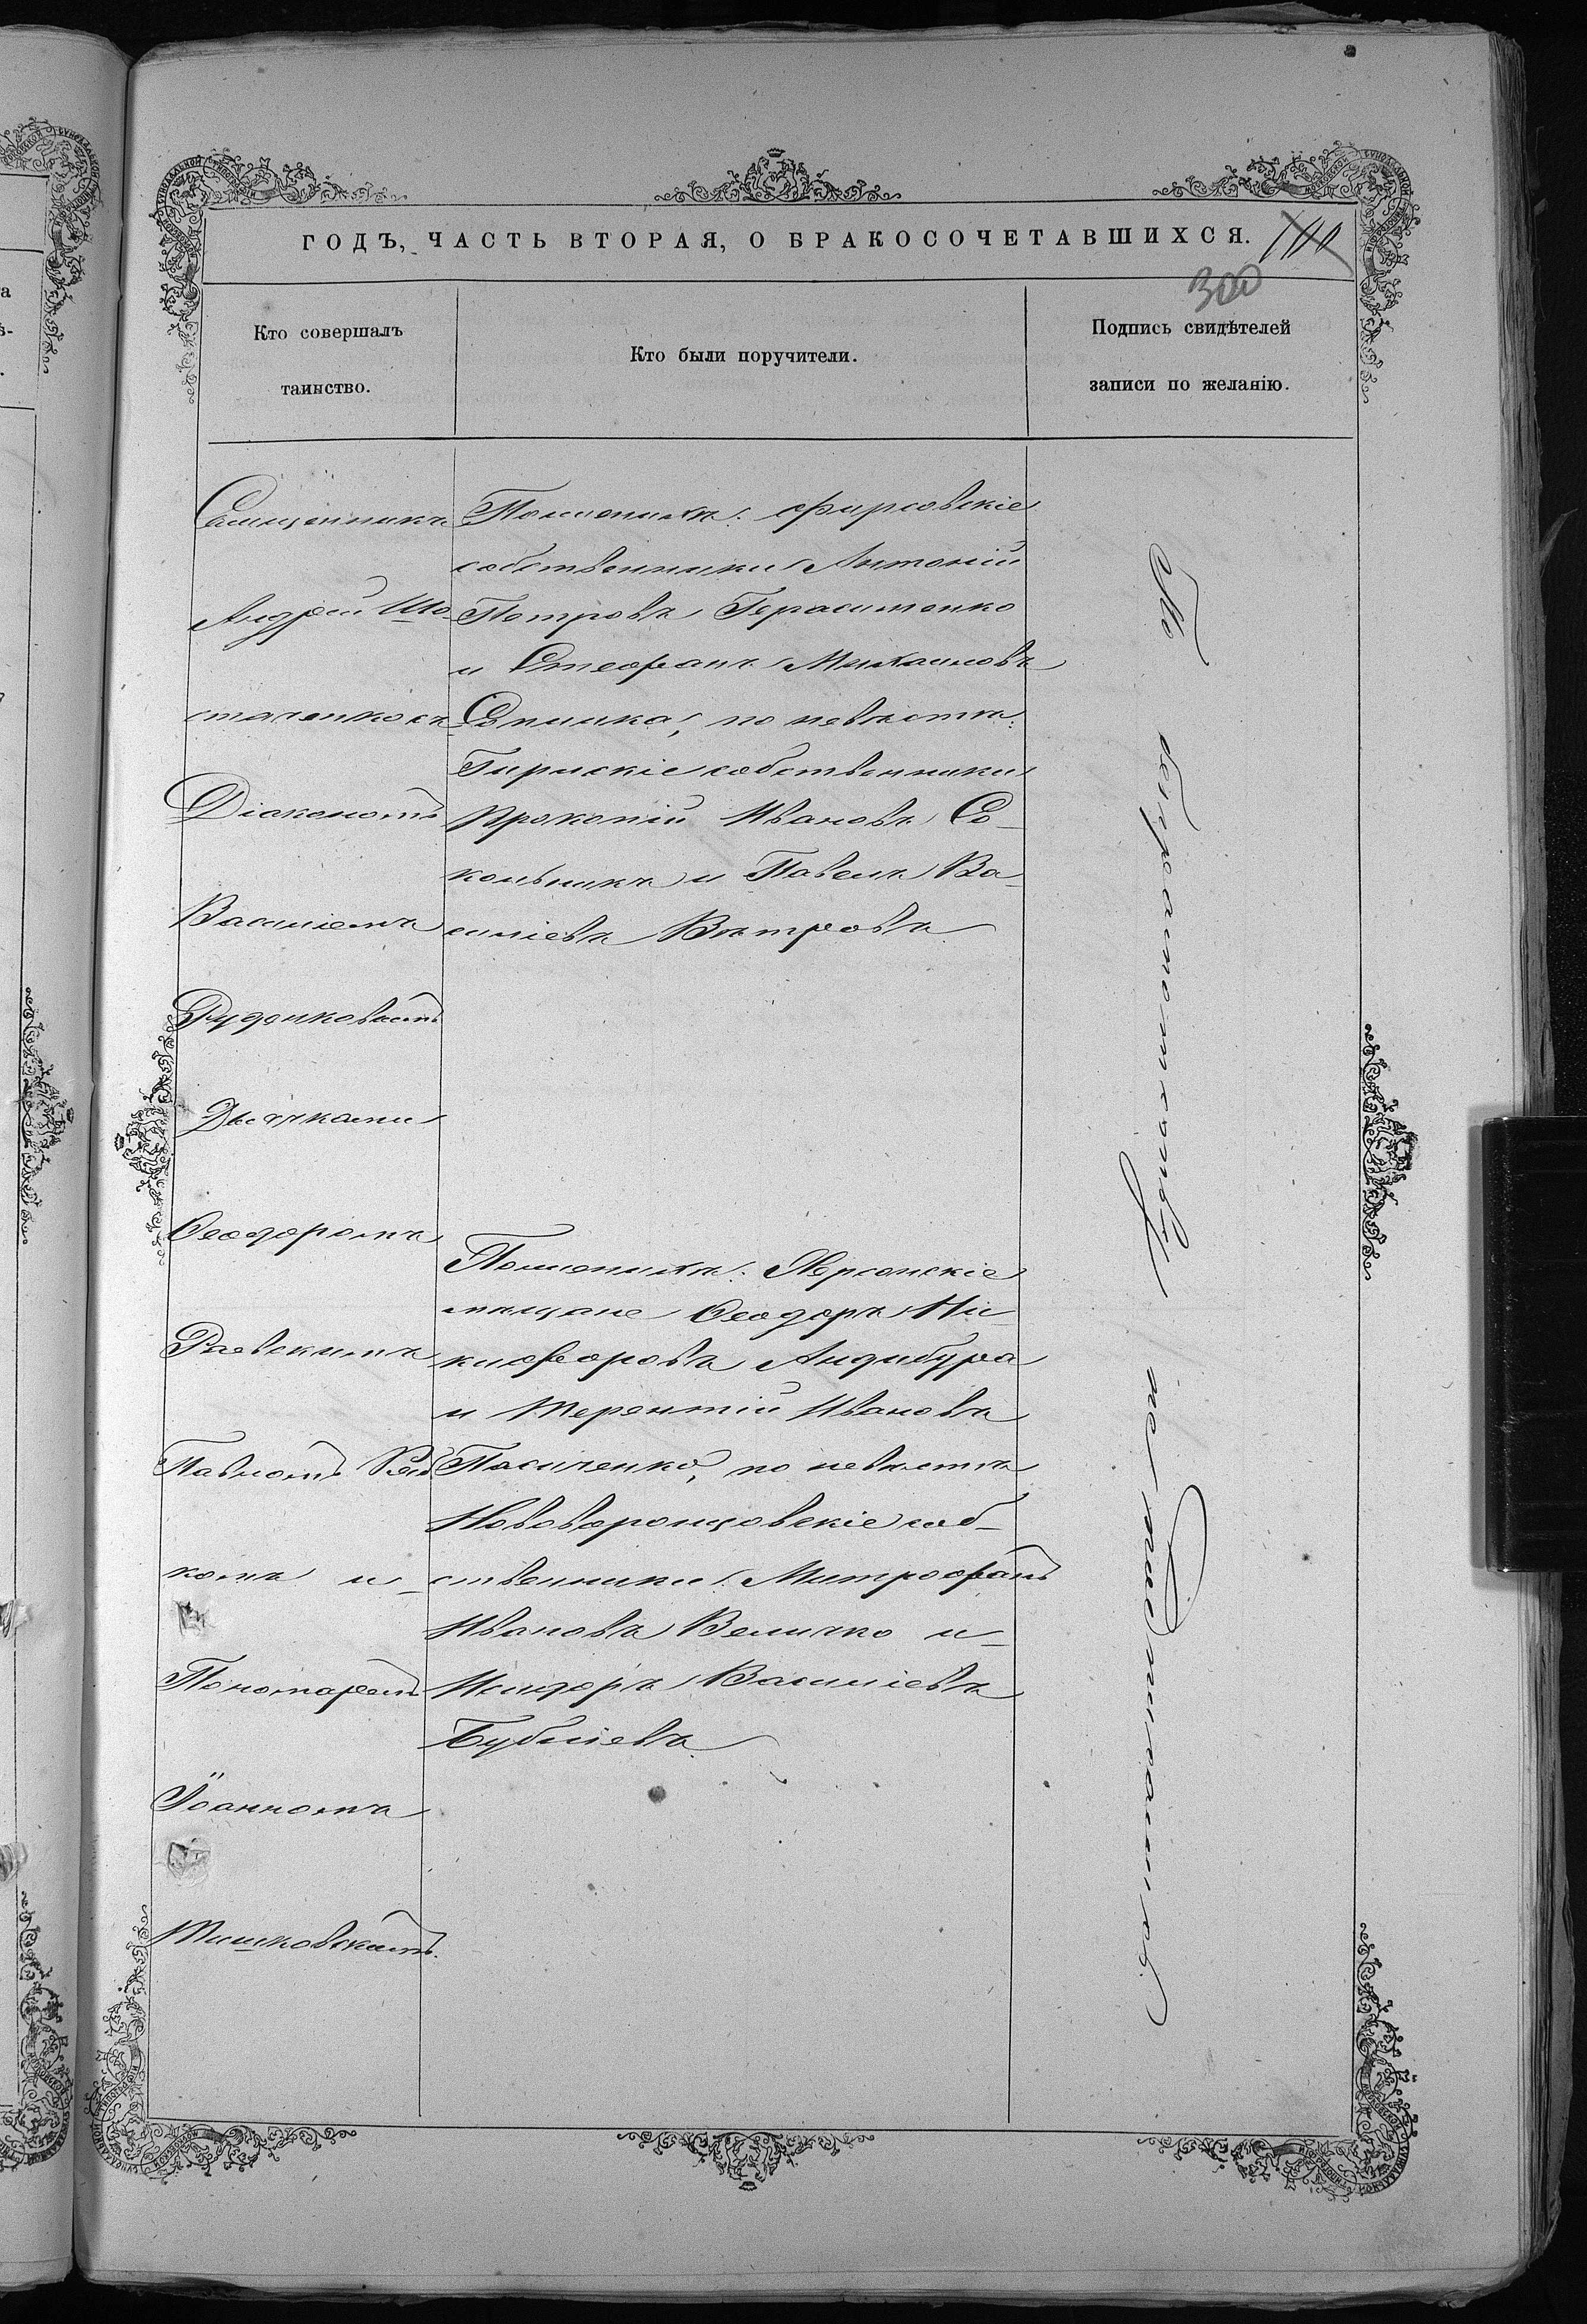 ГОДЪ, ЧАСТЬ ВТОРАЯ, О БРАКОСОЧЕТАВШИХСЯ.
300
Кто совершалъ
таинство.
Кто были поручители.
Подпись свидѣтелей
записи по желанію.
Священникъ
Андрей Шо-
стаченко съ
Діакономъ
Василіемъ
Рудликовымъ
Дьячками
Ѳеодоромъ
Раевскимъ
Павломъ
комъ и
Пономаремъ
Іоанномъ
Тишковскимъ.
По женихѣ: Фирсовскіе
собственники Антоній
Петровъ Герасименко
и Стефанъ Михаиловъ
по невѣстѣ:
собственники
Прокопій Ивановъ Со-
кольникъ и Павелъ Ва-
силіевъ Вѣтровъ
По женихѣ: Херсонскіе
мѣщане Ѳеодоръ Ни-
кифоровъ Андибура
и Терентій Ивановъ
Пасиченко, по невѣстѣ
Нововоронцовскіе соб-
ственники: Митрофанъ
Ивановъ Величко и
Исидоръ Василіевъ
Бубліевъ